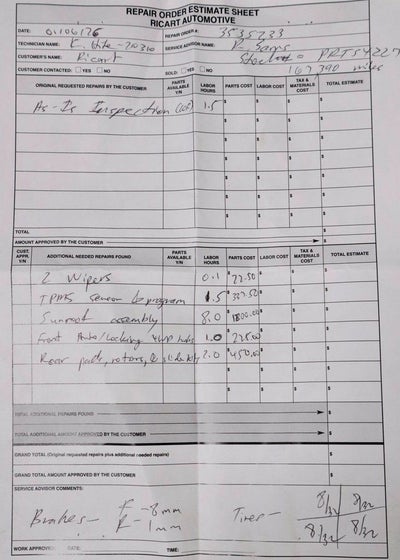 REPAIR ORDER ESTIMATE SHEET
RICART AUTOMOTIVE
DATE: 01/06/26 REPAIR ORDER #: 3535233
TECHNICIAN NAME: SERVICE ADVISOR NAME:
CUSTOMER'S NAME: Ricart PRTS4227
CUSTOMER CONTACTED: YES NO SOLD: YES NO 167,390 miles
ORIGINAL REQUESTED REPAIRS BY THE CUSTOMER PARTS AVAILABLE Y/N LABOR HOURS PARTS COST LABOR COST TAX & MATERIALS COST TOTAL ESTIMATE
As-Is Inspection 1.5 $ $ $ $
TOTAL
AMOUNT APPROVED BY THE CUSTOMER $
CUST. APPR. Y/N ADDITIONAL NEEDED REPAIRS FOUND PARTS AVAILABLE Y/N LABOR HOURS PARTS COST LABOR COST TAX & MATERIALS COST TOTAL ESTIMATE
2 Wipers 0.1 $ 22.50 $ $ $
TPMS sensor & program 1.5 $
Sunroof assembly 8.0 $ 1800.00 $
Front Auto/Locking 4WD hubs 1.0 $
Rear pads, rotors, & slide kit 2.0 $ 450.00 $
TOTAL ADDITIONAL REPAIRS FOUND $
TOTAL ADDITIONAL AMOUNT APPROVED BY THE CUSTOMER $
GRAND TOTAL (Original requested repairs plus additional needed repairs) $
GRAND TOTAL AMOUNT APPROVED BY THE CUSTOMER $
SERVICE ADVISOR COMMENTS:
F - 8mm 8/32 8/32
Brakes - Tires -
R - 1mm 8/32 8/32
WORK APPROVED: DATE: TIME: